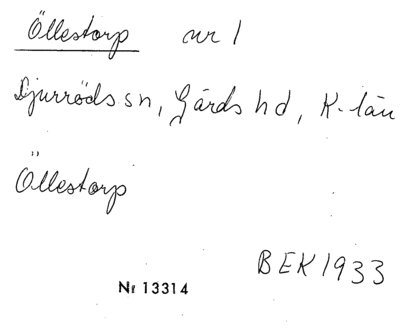 Öllestorp nr 1
Djurröds sn, Gärds hd, K-län
Öllestorp
BEK 1933
Nr 13314